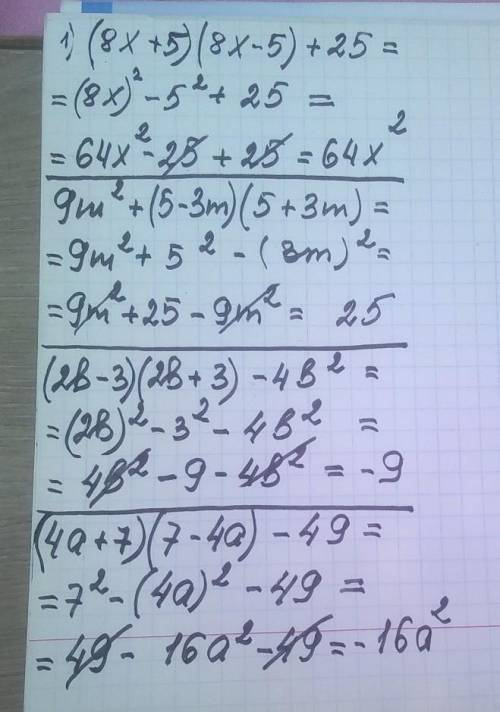 1) (8x+5)(8x-5)+25=
=(8x)²-5²+25=
=64x²-25+25=64x²
9m²+(5-3m)(5+3m)=
=9m²+5²-(3m)²=
=9m²+25-9m²= 25
(2b-3)(2b+3)-4b²=
=(2b)²-3²-4b²=
=4b²-9-4b²=-9
(4a+7)(7-4a)-49=
=7²-(4a)²-49=
=49-16a²-49=-16a²